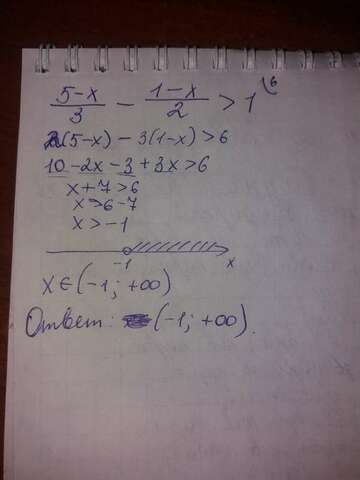 (5-x)/3 - (1-x)/2 > 1 \6
2(5-x) - 3(1-x) > 6
10 - 2x - 3 + 3x > 6
x + 7 > 6
x > 6 - 7
x > -1
-1 x
x ∈ (-1; +∞)
Ответ: (-1; +∞).